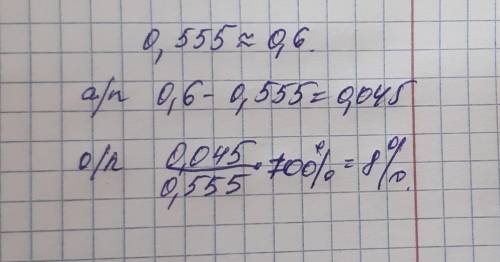 0,555 ≈ 0,6.
а/п 0,6 - 0,555 = 0,045
о/п 0,045/0,555 · 100% = 8%.